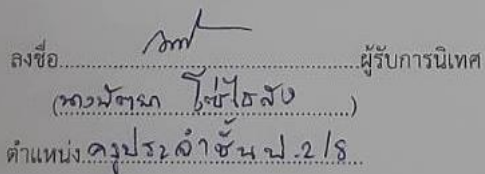 ลงชื่อ....................ผู้รับการนิเทศ
(นางพัตยา โซ่ไธสง)
ตำแหน่ง ครูประจำชั้น ป.2/8